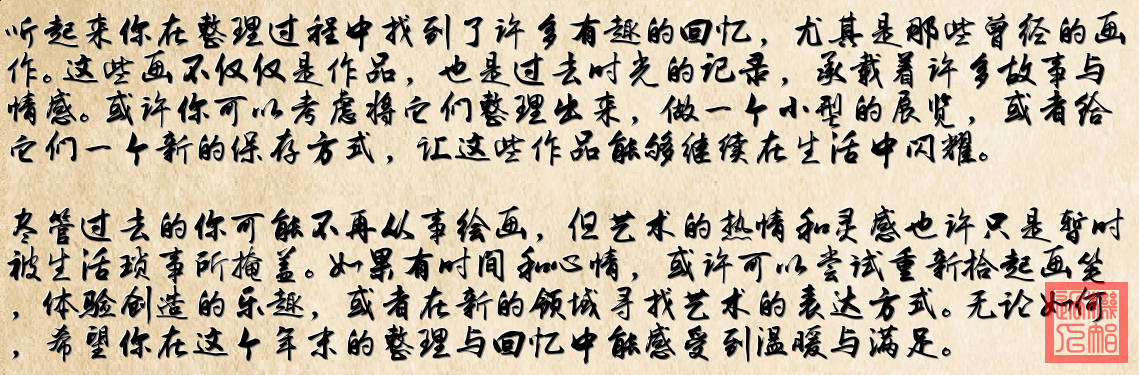 听起来你在整理过程中找到了许多有趣的回忆，尤其是那些曾经的画
作。这些画不仅仅是作品，也是过去时光的记录，承载着许多故事与
情感。或许你可以考虑将它们整理出来，做一个小型的展览，或者给
它们一个新的保存方式，让这些作品能够继续在生活中闪耀。
尽管过去的你可能不再从事绘画，但艺术的热情和灵感也许只是暂时
被生活琐事所掩盖。如果有时间和心情，或许可以尝试重新拾起画笔
，体验创造的乐趣，或者在新的领域寻找艺术的表达方式。无论如何
，希望你在这个年末的整理与回忆中能感受到温暖与满足。